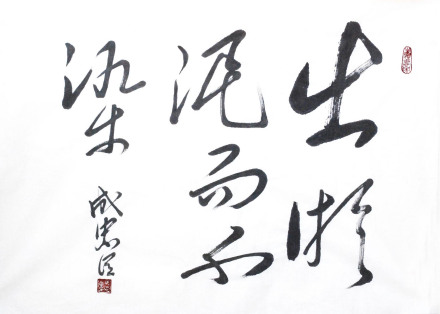 出淤
泥而不
染
成忠